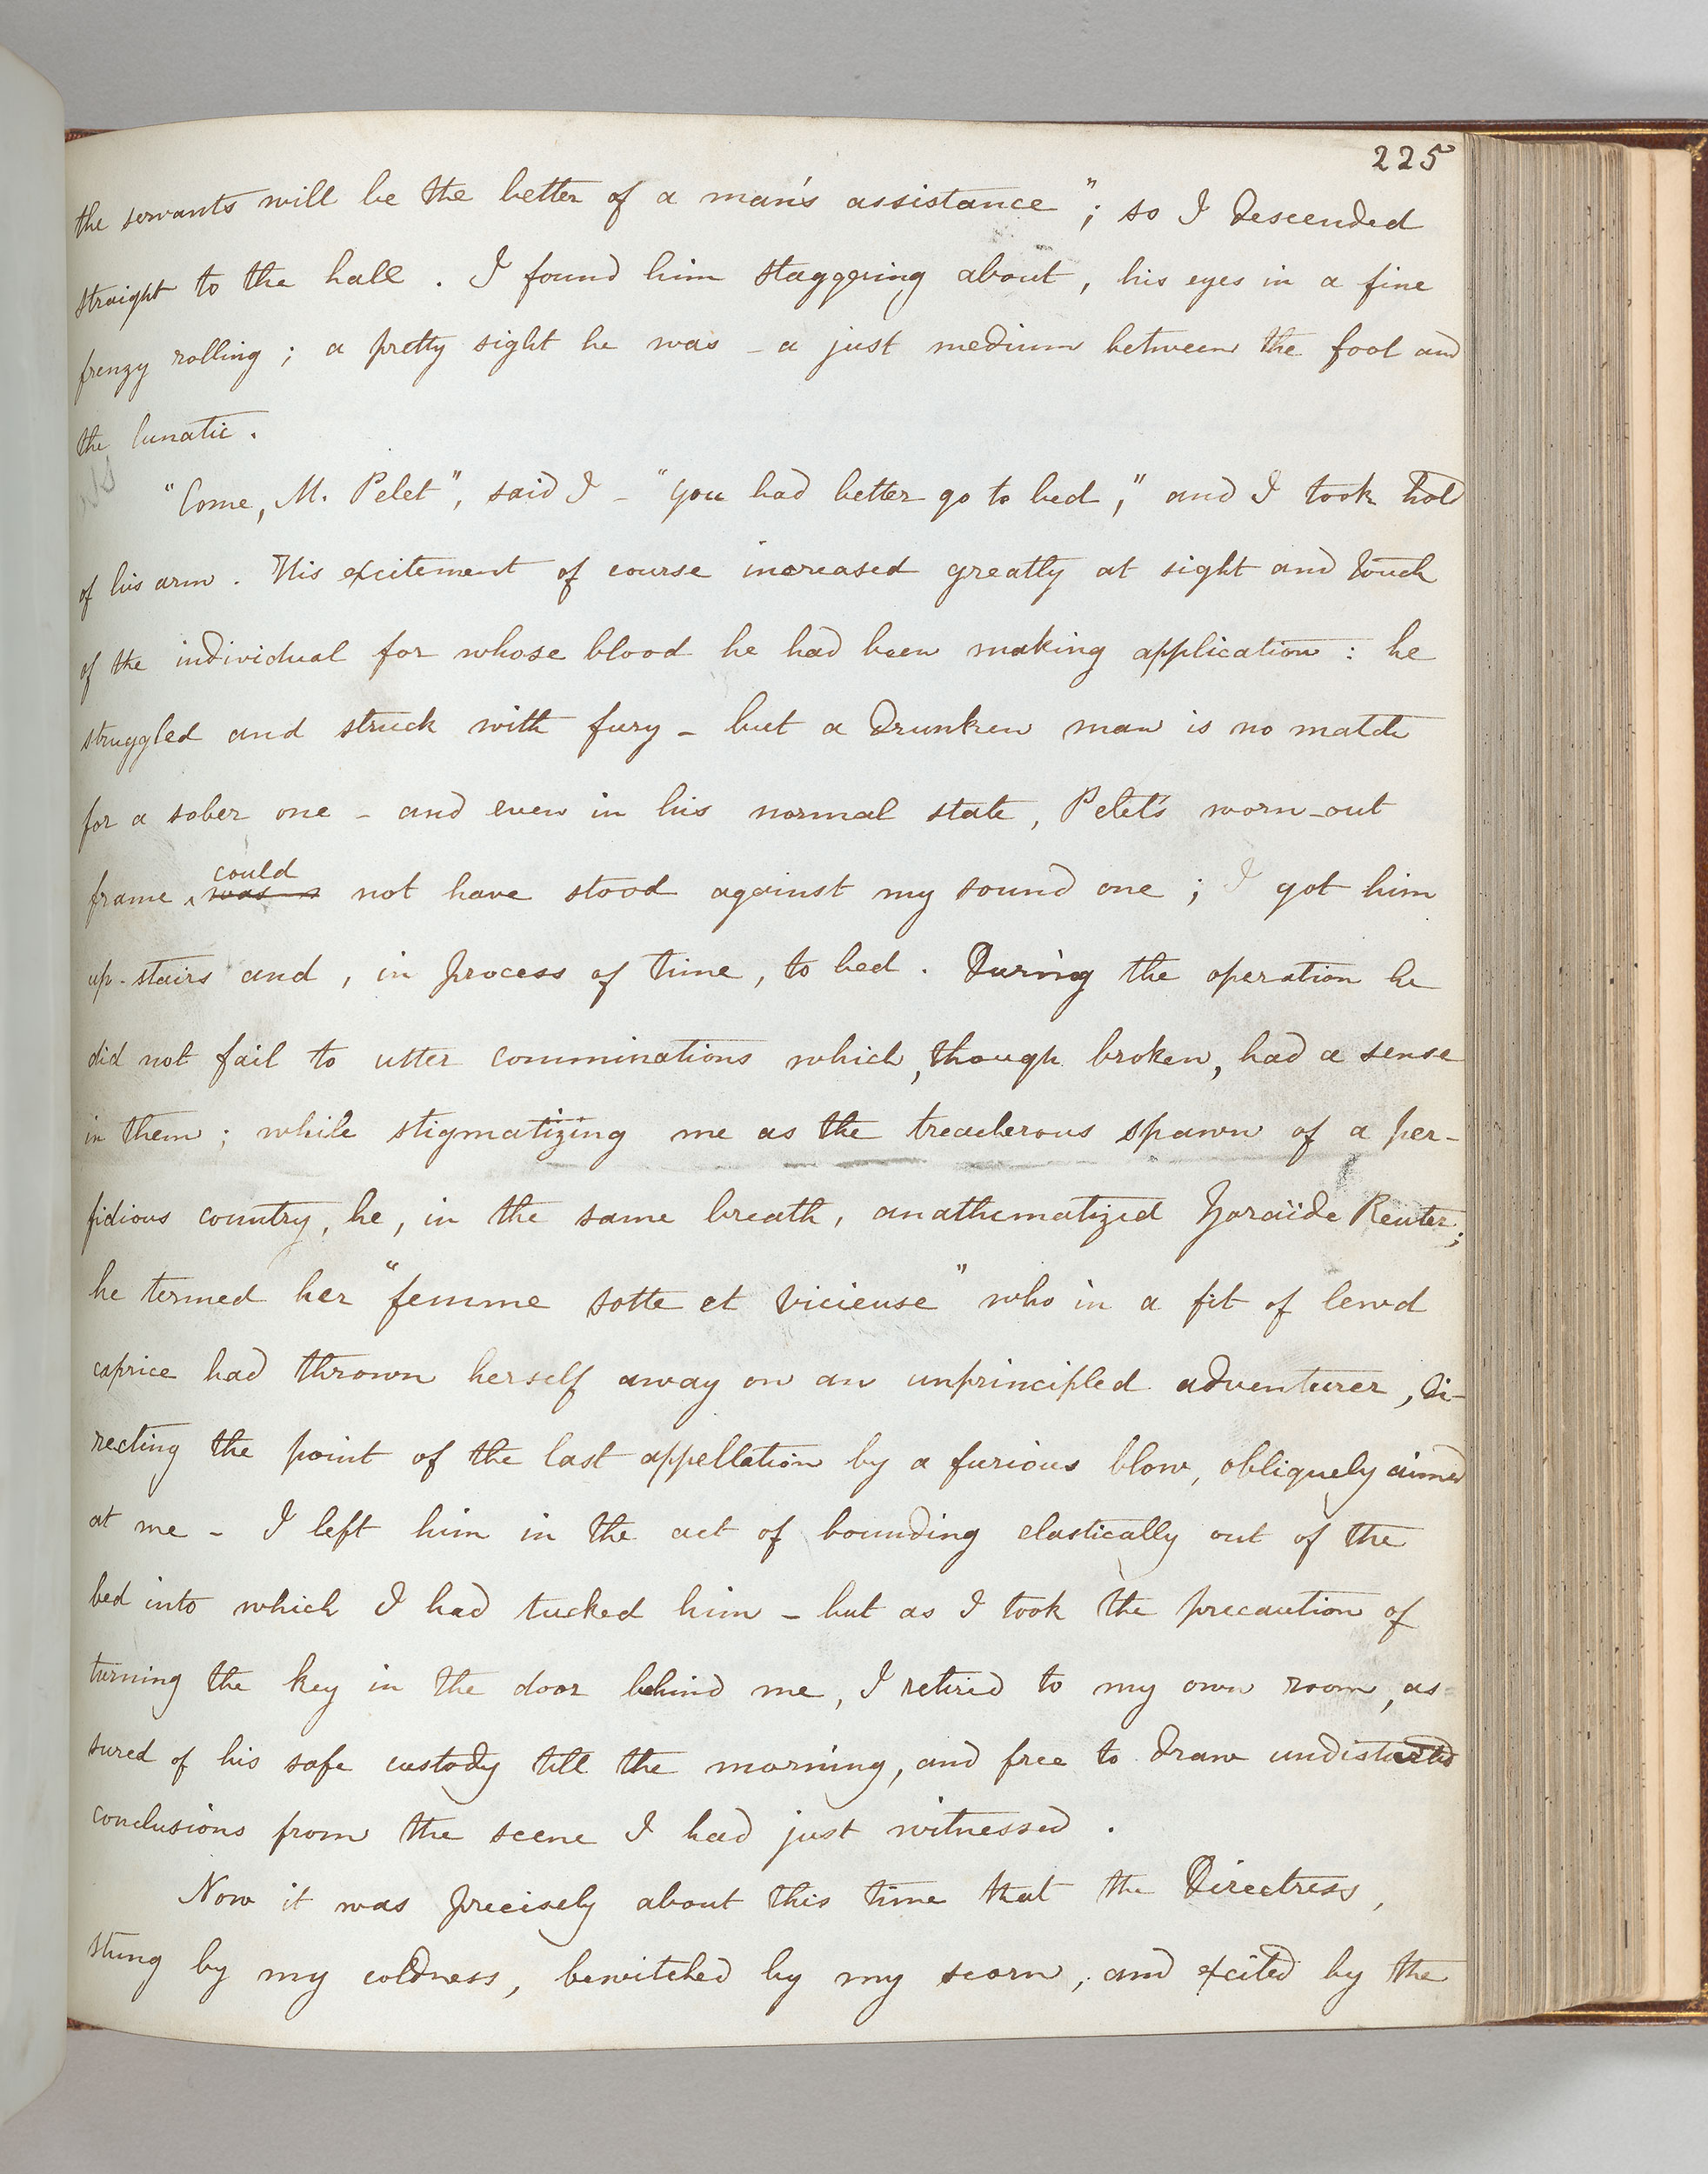 225
the servants will be the better of a man's assistance"; so I descended
straight to the hall. I found him staggering about, his eyes in a fine
frenzy rolling; a pretty sight he was – a just medium between the fool and
the lunatic.
"Come, M. Pelet", said I – "you had better go to bed," and I took hold
of his arm. His excitement of course increased greatly at sight and touch
of the individual for whose blood he had been making application: he
struggled and struck with fury – but a drunken man is no match
for a sober one – and even in his normal state, Pelet's worn-out
could
frame ‸ was not have stood against my sound one; I got him
up-stairs and, in process of time, to bed. During the operation he
did not fail to utter comminations which, though broken, had a sense
in them; while stigmatizing me as the treacherous spawn of a per-
fidious country, he, in the same breath, anathematized Zoraïde Reuter;
he termed her "femme sotte et vicieuse" who in a fit of lewd
caprice had thrown herself away on an unprincipled adventurer, di-
recting the point of the last appellation by a furious blow, obliquely aimed
at me – I left him in the act of bounding elastically out of the
bed into which I had tucked him – but as I took the precaution of
turning the key in the door behind me, I retired to my own room, as-
sured of his safe custody till the morning, and free to draw undisturbed
conclusions from the scene I had just witnessed.
Now it was precisely about this time that the Directress,
stung by my coldness, bewitched by my scorn, and excited by the